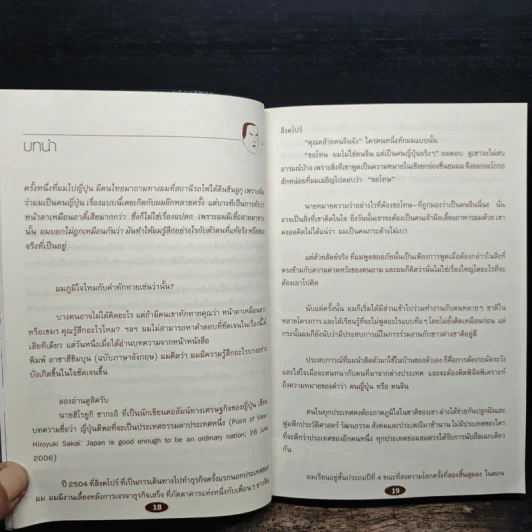 บทนำ
ครั้งหนึ่งที่ผมไปญี่ปุ่น มีคนไทยมาถามทางผมที่สถานีรถไฟใต้ดินชินจูกุ เพราะคิด
ว่าผมเป็นคนญี่ปุ่น เรื่องแบบนี้เคยเกิดกับผมอีกหลายครั้ง
หน้าตาเหมือนอาตี๋เสียมากกว่า ซึ่งก็ไม่ใช่เรื่องแปลก เพราะผมมีเชื้อสาย
นั้น ผมบอกไม่ถูกเหมือนกันว่า มันทำให้ผมรู้สึกอย่างไรกับตัวตนที่แท้จริง
จริงที่เป็นอยู่
ผมภูมิใจไหมกับคำทักทายเช่นว่านั้น?
บางคนอาจไม่ได้คิดอะไร แต่ถ้ามีคนเขาทักทายคุณว่า หน้าตาเหมือน
หรือเขมร คุณรู้สึกอะไรไหม? ฯลฯ ผมไม่สามารถหาคำตอบที่ชัดเจนในเรื่องนี้ได้
เสียทีเดียว แต่วันหนึ่งเมื่อได้อ่านบทความจากหน้าหนังสือ
พิมพ์ อาซาฮีชิมบุน (ฉบับภาษาอังกฤษ) ผมคิดว่า ผมมีความรู้สึกอะไรบางอย่าง
บังเกิดขึ้นในใจชัดเจนขึ้น
ลองอ่านดูสิครับ
นายฮิโรยูกิ ซากะอิ ที่เป็นนักเขียนคอลัมน์ทางเศรษฐกิจของญี่ปุ่น เขียน
บทความชื่อว่า ญี่ปุ่นดีพอที่จะเป็นประเทศธรรมดาประเทศหนึ่ง (Point of View/
Hiroyuki Sakai: Japan is good enough to be an ordinary nation; 26 June
2006)
ปี 2504 ที่สิงคโปร์ ที่เป็นการเดินทางไปทำธุรกิจครั้งแรกนอกประเทศของ
ผม ผมมีงานเลี้ยงหลังการเจรจาธุรกิจเสร็จ ที่ภัตตาคารแห่งหนึ่งกับเพื่อนๆ ชาว
18
สิงคโปร์
"คุณคล้ายคนจีนจัง" ใครคนหนึ่งทักผมแบบนั้น
"ขอโทษ ผมไม่ใช่คนจีน แต่เป็นคนญี่ปุ่นจริงๆ" ผมตอบ ดูเขาจะไม่สบ
อารมณ์บ้าง เพราะสิ่งที่เขาพูดเป็นความหมายในเชิงยกย่องชื่นชมผม จึงออกจะโกรธ
สักหน่อยที่ผมเผอิญไปตอบว่า "ขอโทษ"
นายหมายความว่าอย่างไรที่ต้องขอโทษ—ที่ถูกมองว่าเป็นคนจีนนี่นะ นั่น
อาจเป็นสิ่งที่เขาคิดในใจ ยิ่งวันนั้นเขาจะต้องเป็นคนเจ้ามือเลี้ยงอาหารผมด้วย เขา
คงอดคิดไม่ได้แน่ว่า ผมเป็นคนกระด้างไม่เบา
แต่ด้วยสัตย์จริง ที่ผมพูดขออภัยนั้นเป็นเพียงการพูดเมื่อต้องกล่าวในสิ่งที่
ตรงข้ามกับความคาดหวังของคนถาม และผมก็คิดว่านั้นไม่ใช่เรื่องใหญ่โตอะไรที่จะ
ต้องเอาไปคิด
นับแต่ครั้งนั้น ผมก็เริ่มได้มีส่วนเข้าไปร่วมทำงานกับคนหลายๆ ชาติใน
หลายโครงการ และได้เรียนรู้ที่จะไม่พูดอะไรแบบทื่อๆ โดยไม่ยั้งคิดเหมือนก่อน แต่
กระนั้นผมก็ยังนับว่ามีประสบการณ์ในการร่วมงานกับชาวต่างชาติอยู่ดี
ประสบการณ์ที่ผมนำติดตัวมาใช้ในบ้านของตัวเอง ก็คือการต้องระมัดระวัง
และใส่ใจเมื่อจะสนทนากับคนที่มาจากต่างประเทศ และจะต้องคิดพินิจพิเคราะห์
ถึงความหมายของคำว่า คนญี่ปุ่น หรือ คนจีน
คนในทุกประเทศคงต้องภาคภูมิใจในชาติของเขา ต่างได้ช่วยกันปลูกฝังและ
ฟูมฟักประวัติศาสตร์ วัฒนธรรม สังคมและประเพณีมาช้านาน ไม่มีประเทศของใคร
ที่จะดีกว่าประเทศของอีกคนหนึ่ง ทุกประเทศย่อมสมควรได้รับการนับถือเอกเดียว
กัน
ผมเรียนอยู่ชั้นประถมปีที่ 4 ขณะที่สงครามโลกครั้งที่สองสิ้นสุดลง ในตอน
19